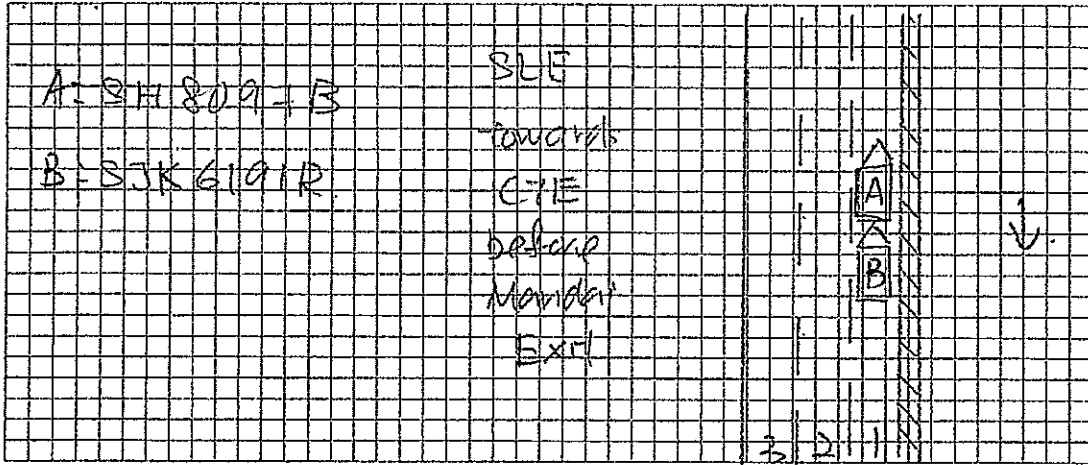 A= SH 8091 B
B= SJK6191R
SLE
towards
CTE
before
Mandai
Exit
A
B
3 2 1